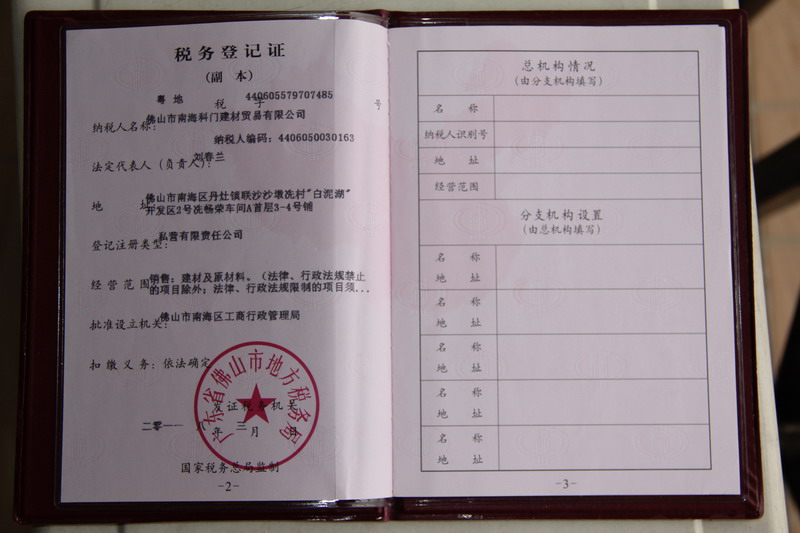 税务登记证
(副 本)
粤 地 税 字 440605579707485 号
纳税人名称：佛山市南海科门建材贸易有限公司
纳税人编码：4406050030163
法定代表人（负责人）：刘春兰
地 址：佛山市南海区丹灶镇联沙沙墩冼村"白泥湖"
开发区2号冼畅荣车间A首层3-4号铺
登记注册类型：私营有限责任公司
经营范围：销售：建材及原材料。（法律、行政法规禁止
的项目除外；法律、行政法规限制的项目须...
批准设立机关：佛山市南海区工商行政管理局
扣缴义务：依法确定
广东省佛山市地方税务局
发证税务机关
二零一一年三月 日
国家税务总局监制
-2-
总机构情况
(由分支机构填写)
名 称
纳税人识别号
地 址
经营范围
分支机构设置
(由总机构填写)
名 称
地 址
名 称
地 址
名 称
地 址
名 称
地 址
名 称
地 址
-3-